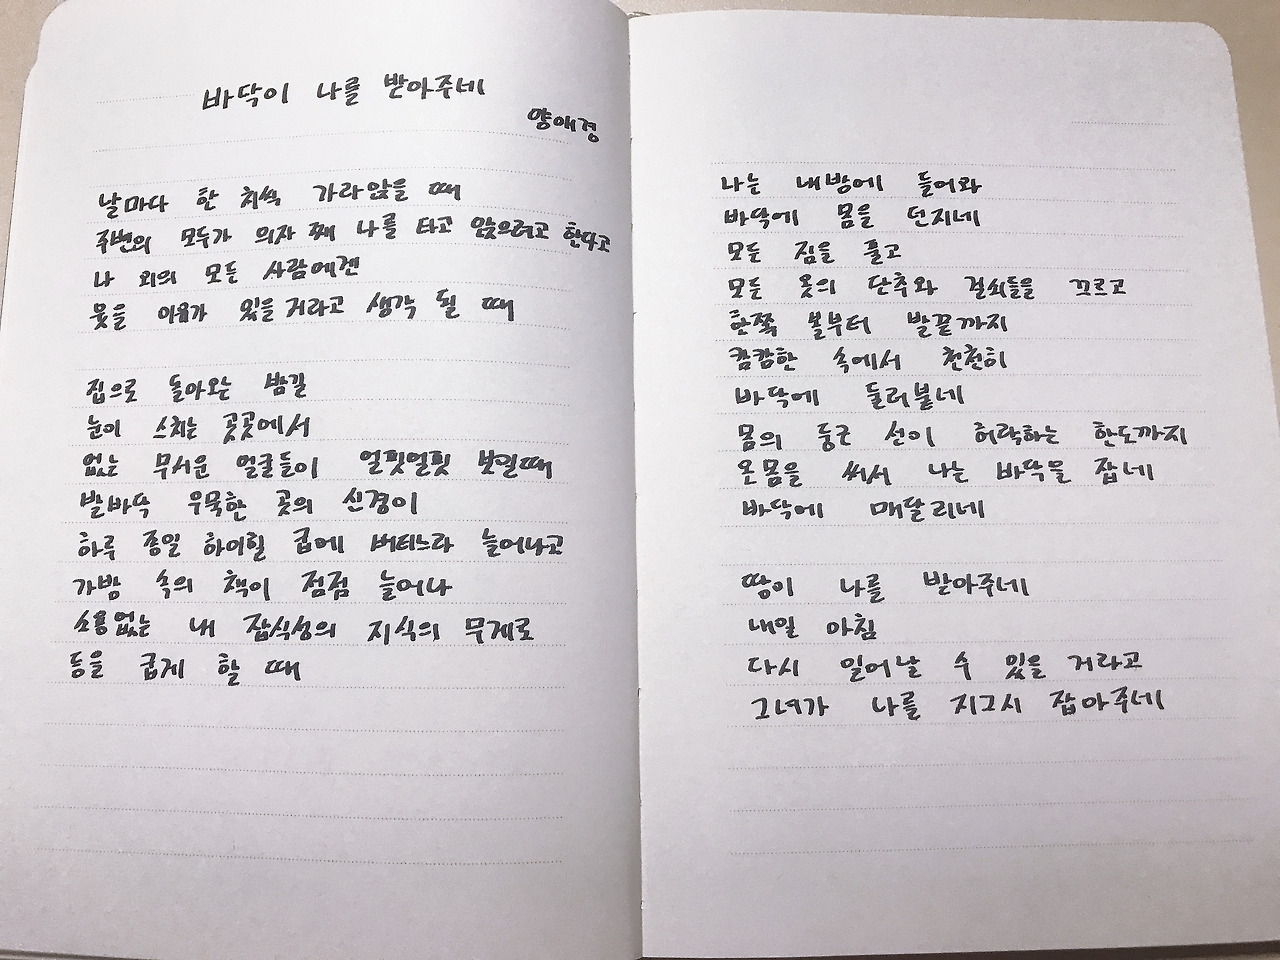 바닥이 나를 받아주네
양애경
날마다 한 치씩 가라앉을 때
주변의 모두가 의자 째 나를 타고 앉으려고 한다고
나 외의 모든 사람에겐
웃을 이유가 있을 거라고 생각 될 때
집으로 돌아오는 밤길
눈이 스치는 곳곳에서
없는 무서운 얼굴들이 얼핏얼핏 보일때
발바닥 우묵한 곳의 신경이
하루 종일 하이힐 굽에 버티느라 늘어나고
가방 속의 책이 점점 늘어나
소용없는 내 잡식성의 지식의 무게로
등을 굽게 할 때
나는 내방에 들어와
바닥에 몸을 던지네
모든 짐을 풀고
모든 옷의 단추와 걸쇠들을 끄르고
한쪽 볼부터 발끝까지
캄캄한 속에서 천천히
바닥에 들러붙네
몸의 둥근 선이 허락하는 한도까지
온몸을 써서 나는 바닥을 잡네
바닥에 매달리네
땅이 나를 받아주네
내일 아침
다시 일어날 수 있을 거라고
그녀가 나를 지그시 잡아주네